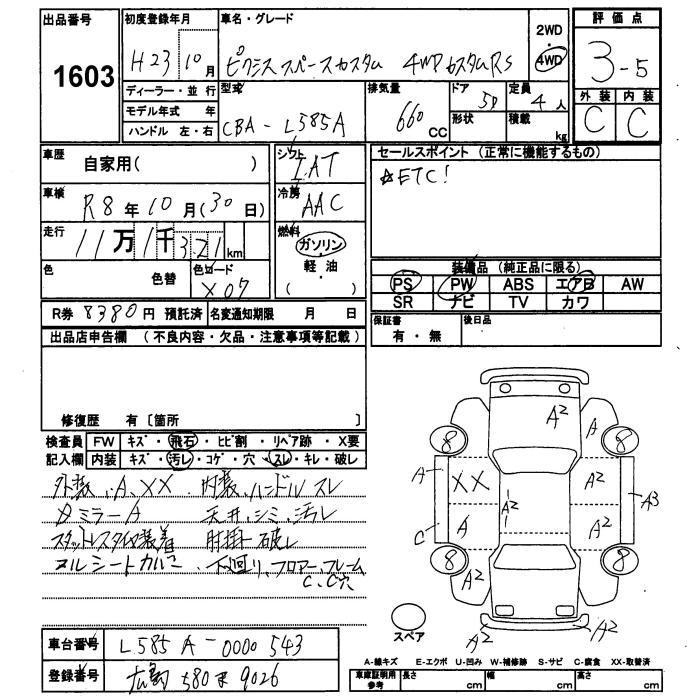 出品番号
1603
初度登録年月
H23 10月
車名・グレード
ピクシス スペースカスタム 4WD カスタムRS
2WD
4WD
評価点
3-5
外装 内装
C C
ディーラー・並行
モデル年式 年
ハンドル 左・右
型式
CBA-L585A
排気量
660 CC
ドア
5D
形状
定員
4人
積載
kg
車歴
自家用( )
車検
R8年10月(30日)
走行
11万1千321km
色
色替
色コード
X07
シフト
IAT
冷房
AAC
燃料
ガソリン
軽・油
( )
セールスポイント (正常に機能するもの)
☆ETC!
装備品 (純正品に限る)
PS PW ABS エアB AW
SR ナビ TV カワ
R券 8380円 預託済 名変通知期限 月 日
保証書
有・無
後日品
出品店申告欄 (不良内容・欠品・注意事項等記載)
修復歴 有〔箇所 〕
検査員 FW キズ・飛石・ヒビ割・リペア跡・X要
記入欄 内装 キズ・汚レ・コゲ・穴・スレ・キレ・破レ
外装、A、XX 内装、ハンドル スレ
ミラーA 天井、シミ、汚レ
スタットレスタイヤ装着 肘掛ケ 破レ
下廻り、フロアー、フレーム
C、C穴
A2 A
8 8
A XX A2 A2 A3
C A A2
8 8
A2
A2 A2
スペア
車台番号 L585A-0000543
登録番号 広島 580 9026
A-線キズ E-エクボ U-凹み W-補修跡 S-サビ C-腐食 XX-取替済
車庫証明用
参考
長さ cm
幅 cm
高さ cm